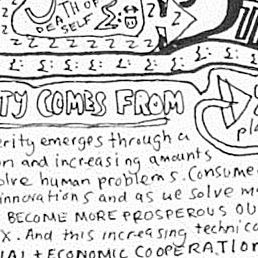 DEATH OF
SELF
Z Z Z Z Z Z Z Z Z
£: £: £: £: £: £: £:
TY COMES FROM
erity emerges through a
on and increasing amounts
olve human problems. Consume
innovations and as we solve m
BECOME MORE PROSPEROUS OU
X. And this increasing technic
IAL + ECONOMIC COOPERATION